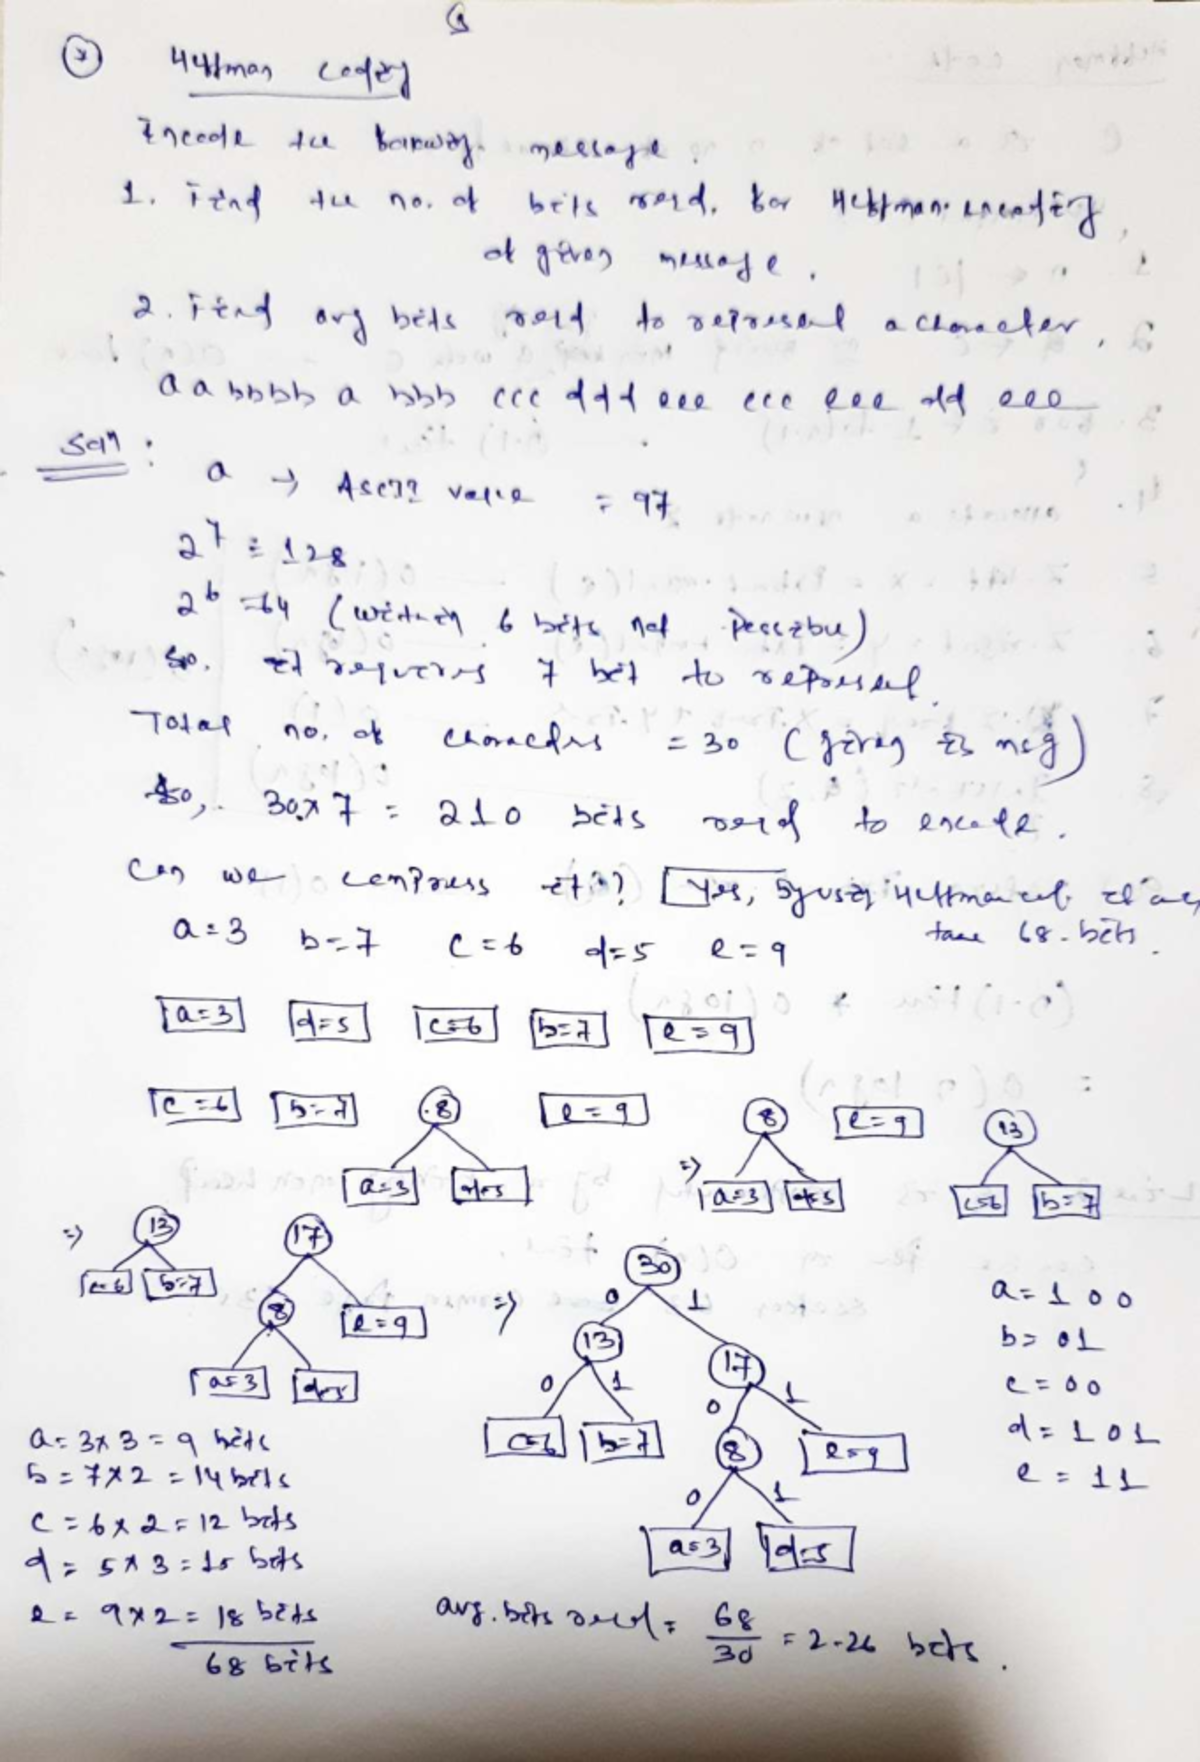 Huffman coding
Encode the following message.
1. Find the no. of bits reqd. for Huffman encoding
of given message.
2. Find avg bits reqd to represent a character.
aabbbb a bbb ccc ddd eee ccc eee dd eee
Soln:
a → ASCII value = 97
2^7 = 128
2^6 = 64 (within 6 bits not possible)
So. it requires 7 bit to represent.
Total no. of characters = 30 (given is msg)
So, 30x7 = 210 bits reqd to encode.
Can we compress it?? Yes, By using Huffman
take 68-bits.
a=3 b=7 c=6 d=5 e=9
a=3 d=5 c=6 b=7 e=9
c=6 b=7 8 e=9 8 e=9 13
a=3 d=5 => a=3 d=5 c=6 b=7
=> 13 17 30
c=6 b=7 8 e=9 => 0 1
a=3 d=5 13 17
0 1 0 1
c=6 b=7 8 e=9
0 1
a=3 d=5
a=100
b=01
c=00
d=101
e=11
a=3x3=9 bits
b=7x2=14 bits
c=6x2=12 bits
d=5x3=15 bits
e=9x2=18 bits
68 bits
avg. bits reqd = 68/30 = 2.26 bits.